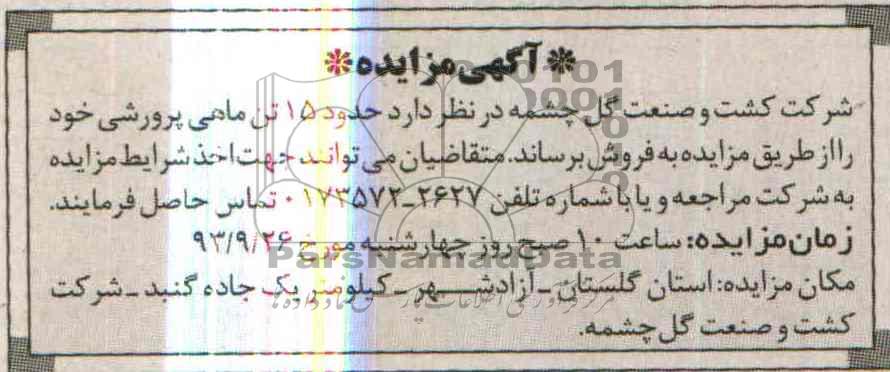 * آگهی مزایده *
شرکت کشت و صنعت گل چشمه در نظر دارد حدود ۱۵ تن ماهی پرورشی خود
را از طریق مزایده به فروش برساند. متقاضیان می توانند جهت اخذ شرایط مزایده
به شرکت مراجعه و یا با شماره تلفن ۲۶۲۷-۰۱۷۳۵۷۲ تماس حاصل فرمایند.
زمان مزایده: ساعت ۱۰ صبح روز چهارشنبه مورخ ۹۳/۹/۲۶
مکان مزایده: استان گلستان - آزادشهر - کیلومتر یک جاده گنبد - شرکت
کشت و صنعت گل چشمه.
ParsNamadData